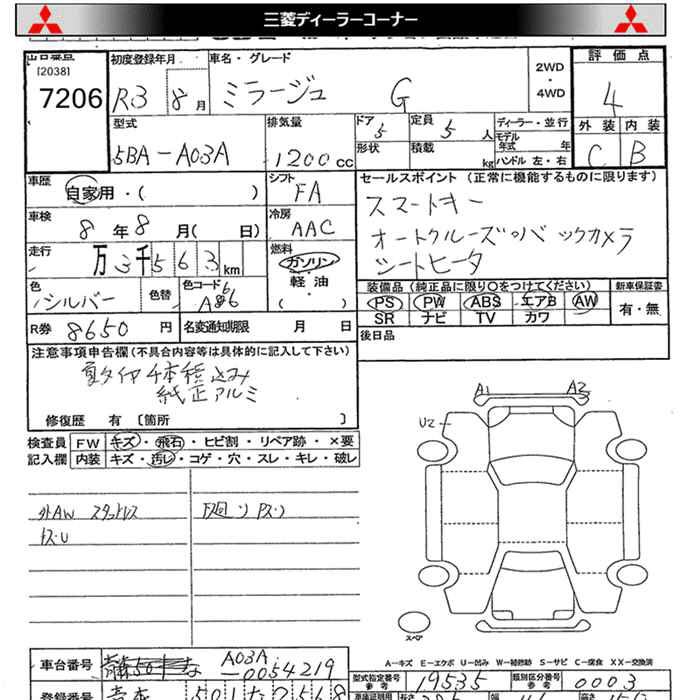 三菱ディーラーコーナー
[2038]
7206
初度登録年月
R3 8月
車名・グレード
ミラージュ G
2WD
・
4WD
評価点
4
外装 内装
C B
型式
5BA-A03A
排気量
1200 cc
ドア 5
定員 5 人
形状
積載 kg
ディーラー・並行
モデル年式 年
ハンドル 左・右
車歴
自家用・( )
シフト
FA
セールスポイント (正常に機能するものに限ります)
スマートキー
オートクルーズ・バックカメラ
シートヒータ
車検
8年8月( 日)
冷房
AAC
走行
万3千563km
燃料
ガソリン
・
軽油
・
( )
色
シルバー
色替
色コード
A86
装備品 (純正品に限り○をつけてください)
PS PW ABS エアB AW
SR ナビ TV カワ
新車保証書
有・無
R券 8650円
名変通知期限 月 日
後日品
注意事項申告欄(不具合内容等は具体的に記入して下さい)
夏タイヤ4本積込み
純正アルミ
修復歴 有〔箇所 〕
A1 A2
U2
検査員 FW キズ・飛石・ヒビ割・リペア跡・×要
記入欄 内装 キズ・汚レ・コゲ・穴・スレ・キレ・破レ
外AW スタットレス
スペア
A-キズ E-エクボ U-凹み W-補修跡 S-サビ C-腐食 XX-交換済
車台番号
A03A
-0054219
型式指定番号
参考
19535
類別区分番号
参考
0003
登録番号